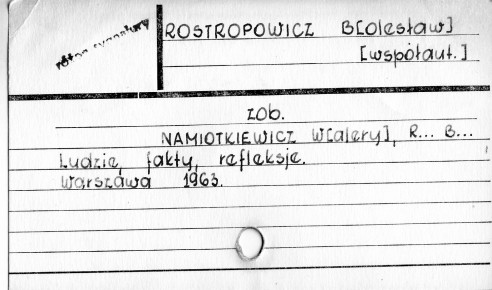 różne sygnatury
ROSTROPOWICZ B[olesław]
[współaut.]
zob.
NAMIOTKIEWICZ W[alery], R... B...
Ludzie, fakty, refleksje.
Warszawa 1963.